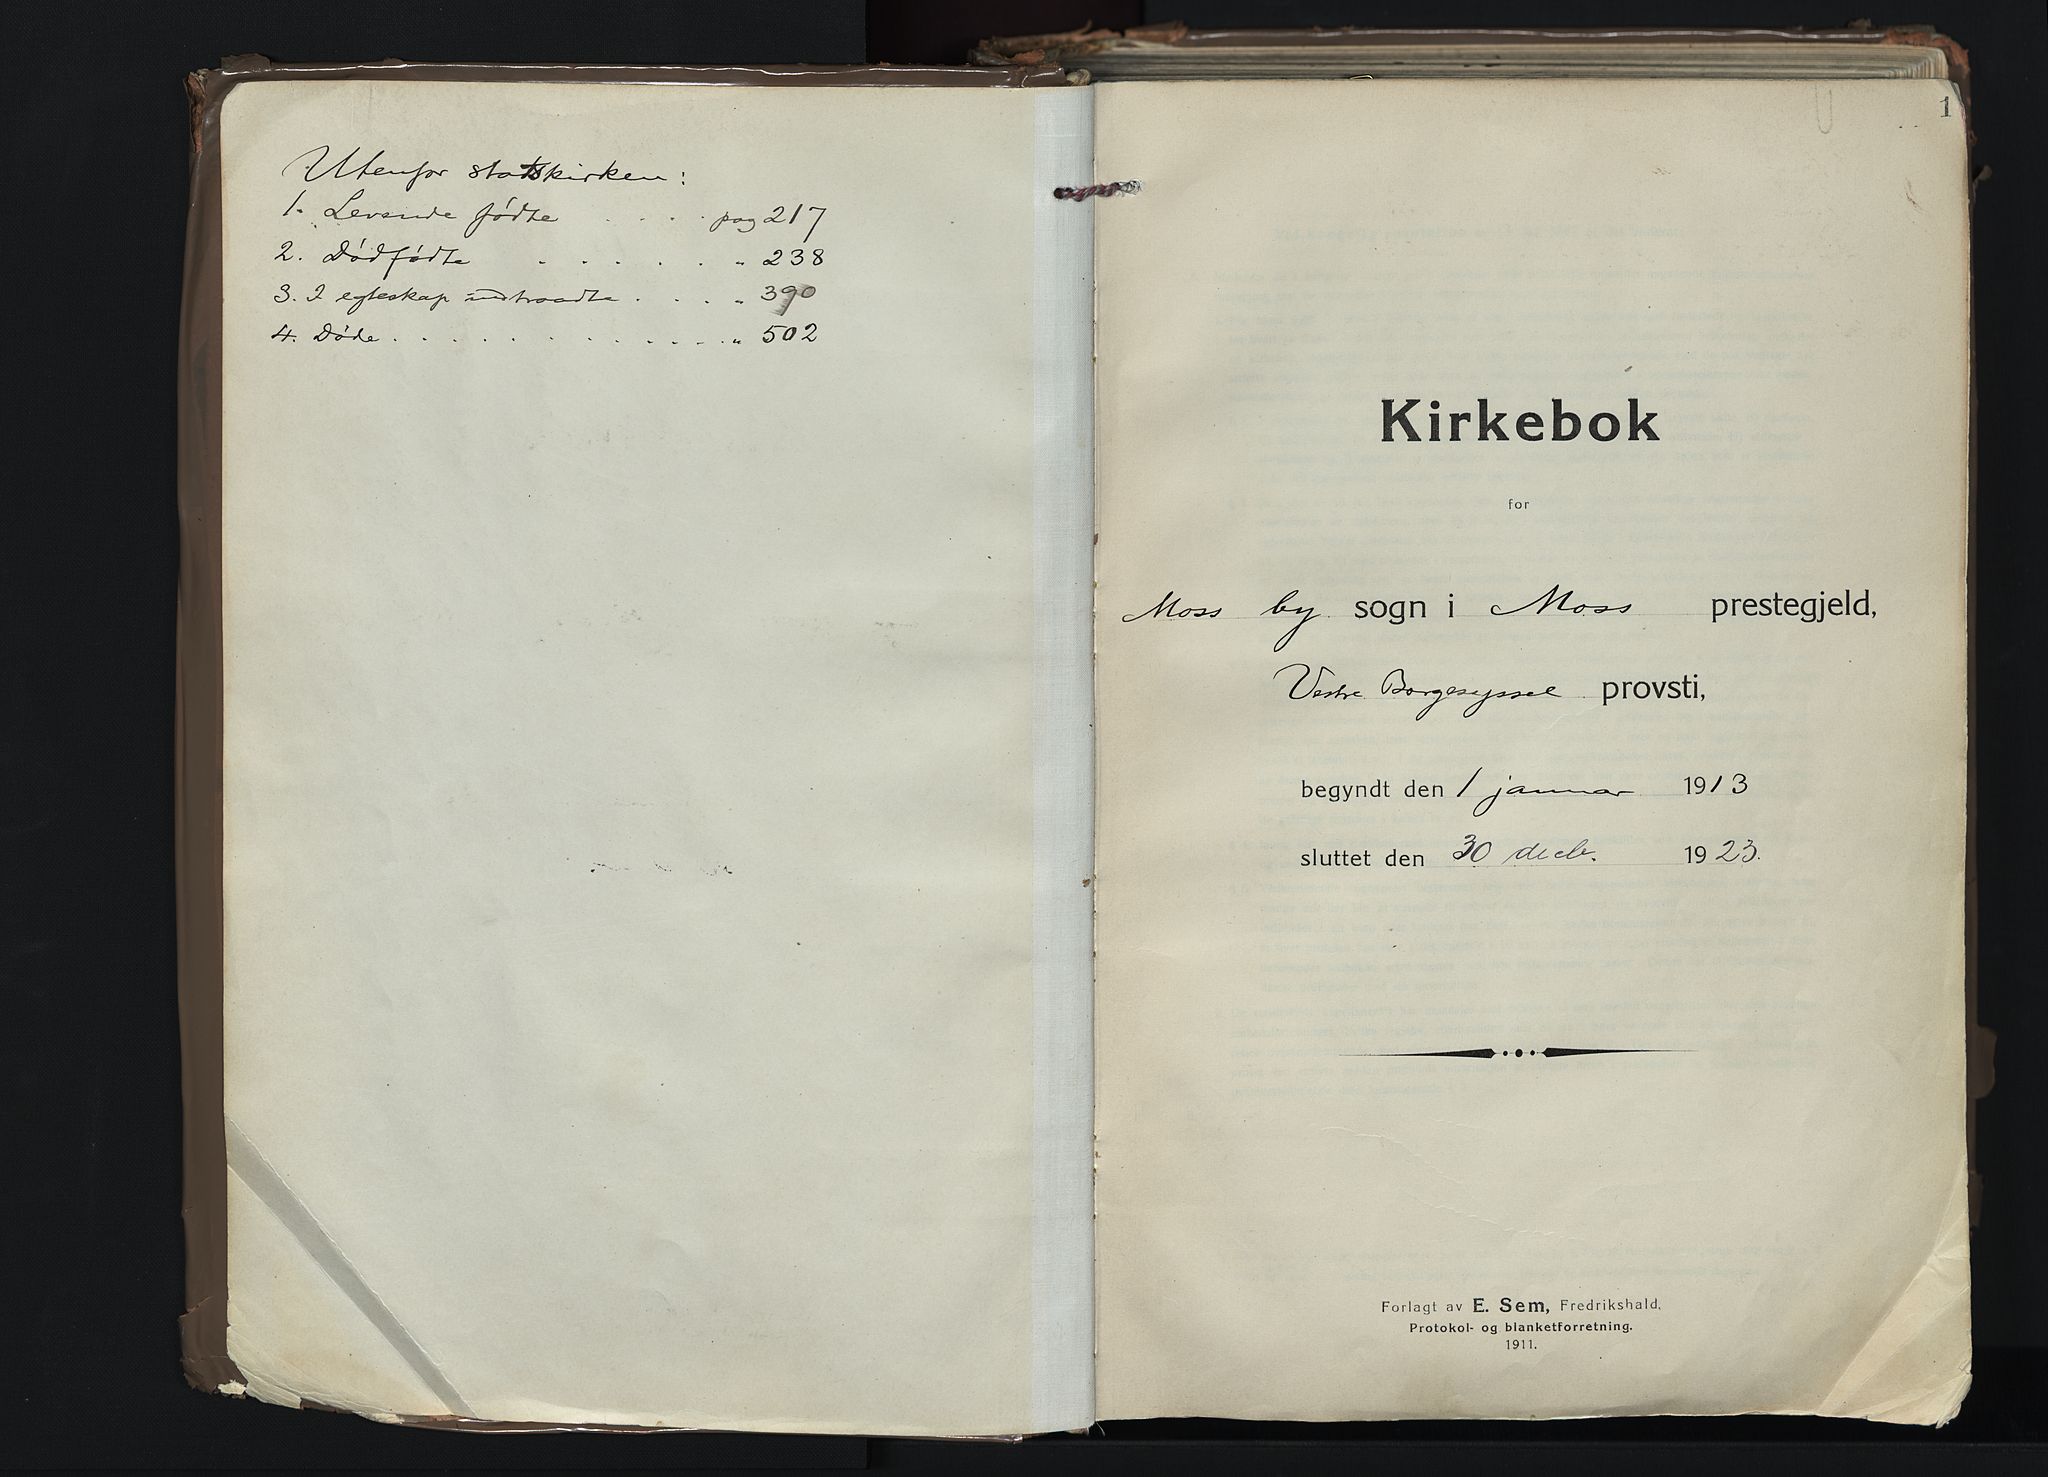 Utenfor statskirken:
1. Levende fødte . . . . pag 217
2. Dødfødte . . . . . . " 238
3. I egteskap indtraadte . . . . " 390
4. Døde . . . . . . . . . . . . . " 502
1
Kirkebok
for
Moss by sogn i Moss prestegjeld,
Vestre Borgesyssel provsti,
begyndt den 1 januar 1913
sluttet den 30 decb. 1923.
Forlagt av E. Sem, Fredrikshald.
Protokol- og blanketforretning.
1911.